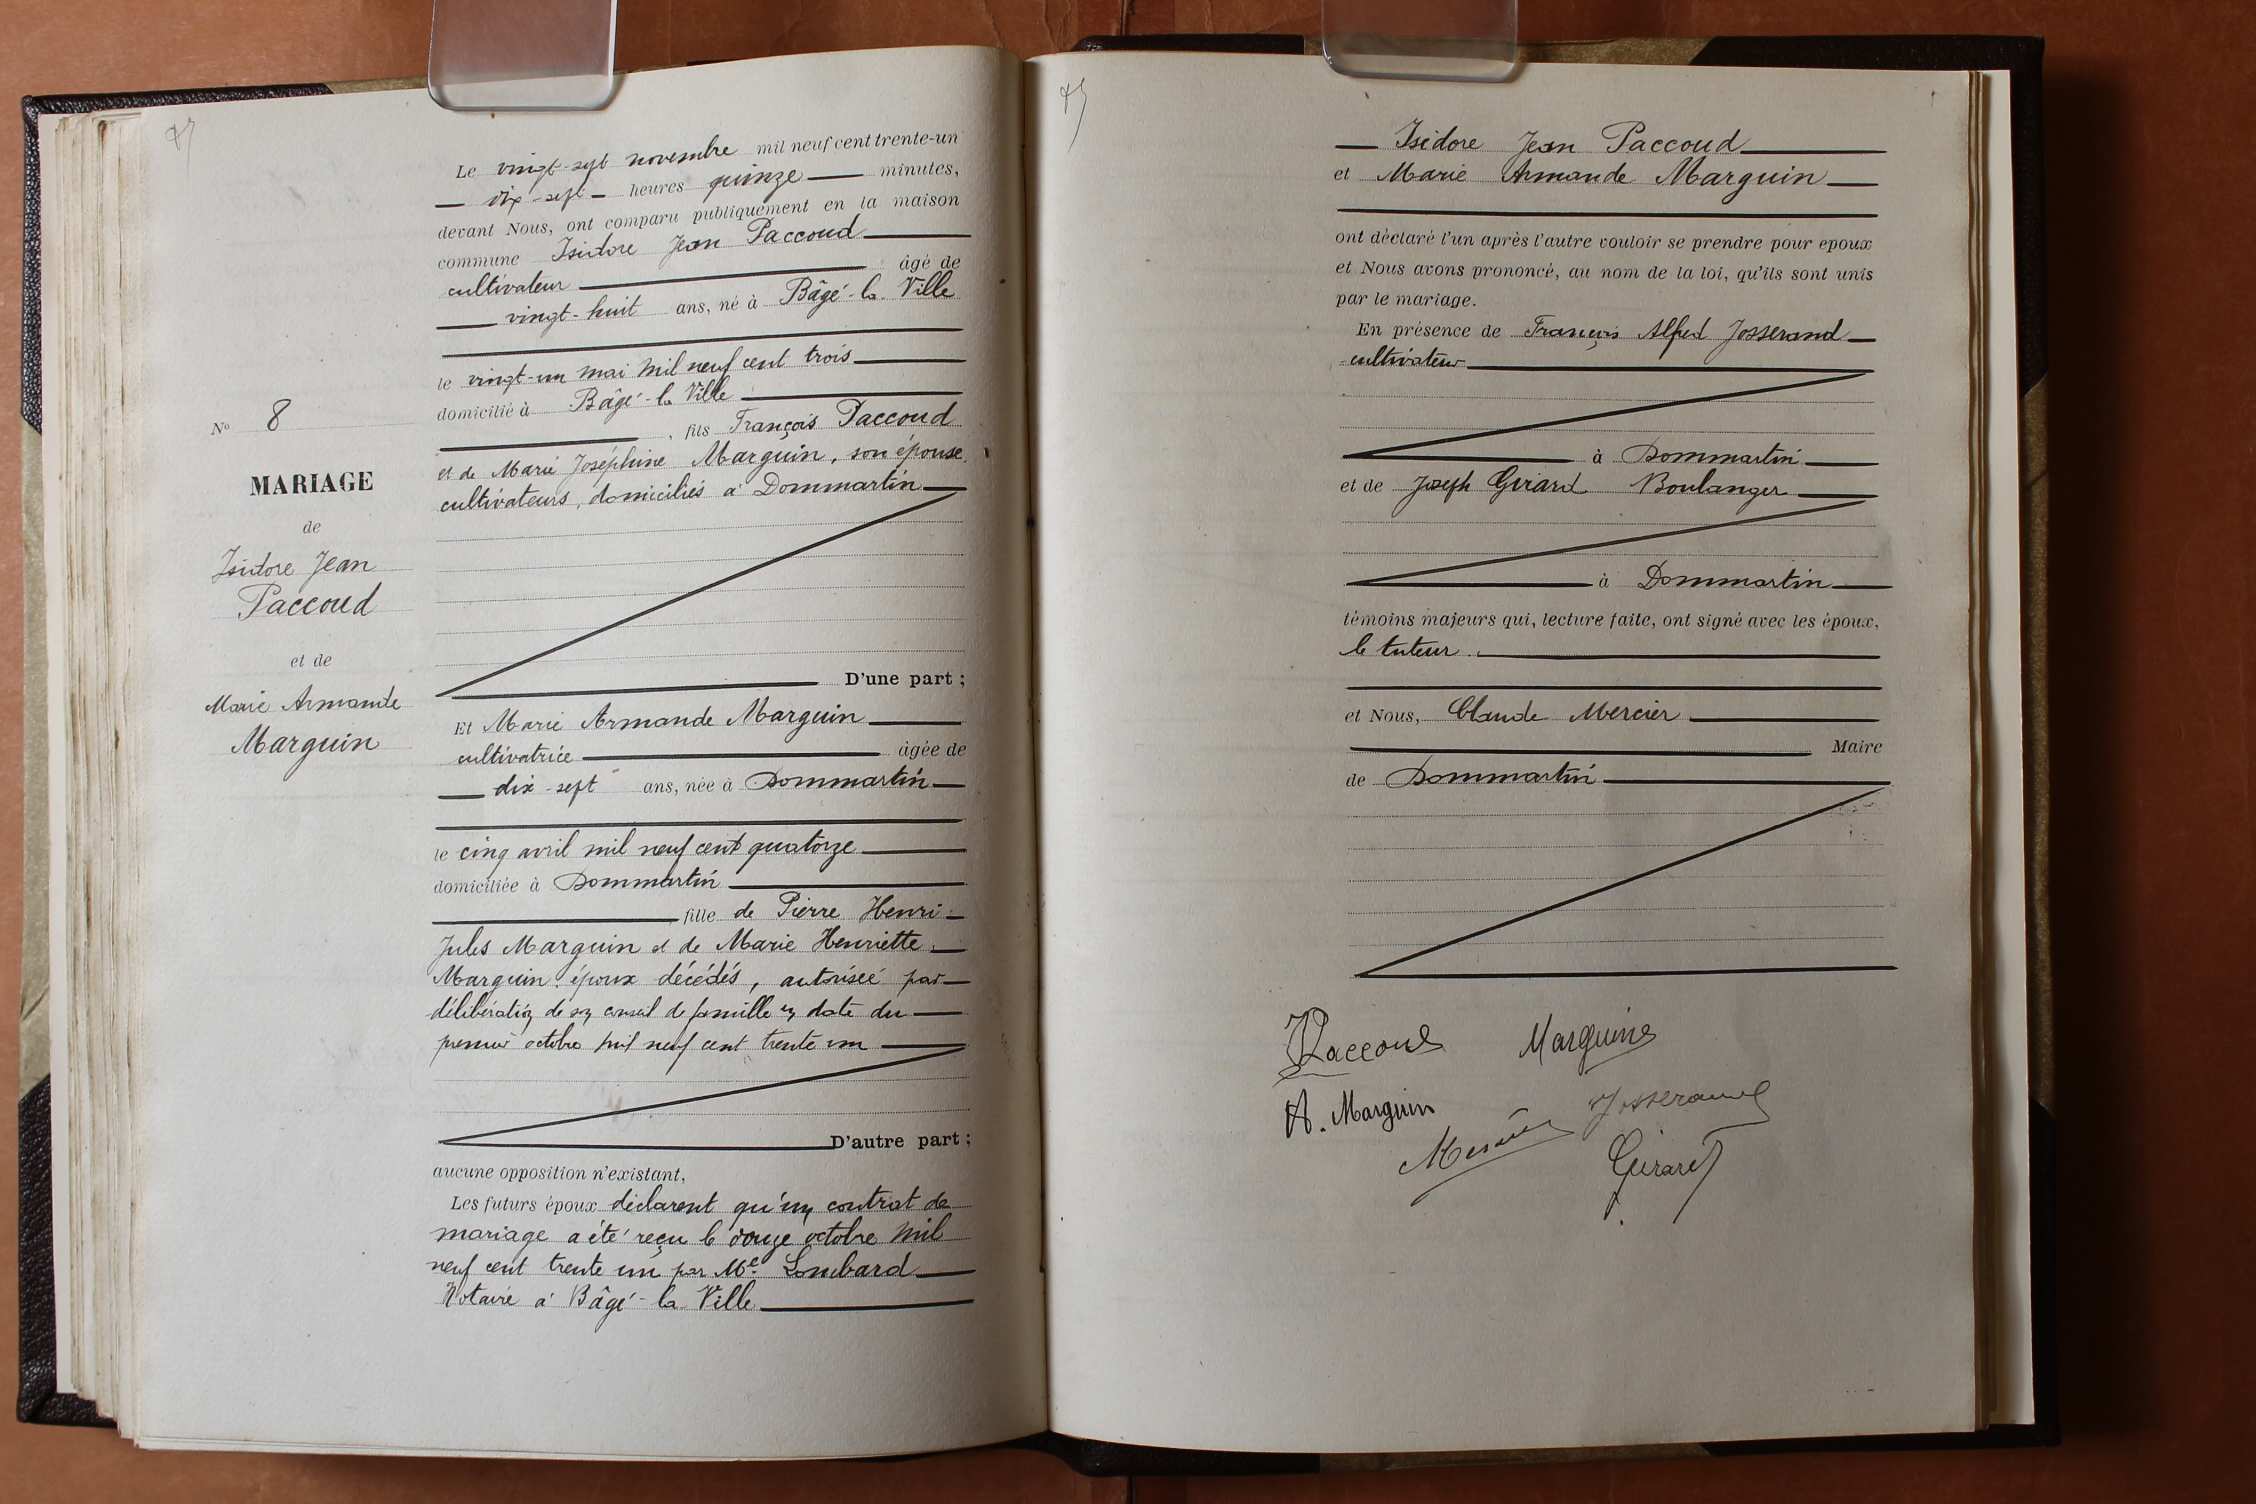 Le vingt-sept novembre mil neuf cent trente-un
dix-sept heures quinze minutes,
devant Nous, ont comparu publiquement en la maison
commune Isidore Jean Paccoud
cultivateur âgé de
vingt-huit ans, né à Bâgé-la Ville
le vingt-un mai mil neuf cent trois
domicilié à Bâgé-la Ville
, fils François Paccoud
et de Marie Joséphine Marguin, son épouse
cultivateurs, domiciliés à Dommartin
No 8
MARIAGE
de
Isidore Jean
Paccoud
et de
Marie Armande
Marguin
D'une part ;
Et Marie Armande Marguin
cultivatrice âgée de
dix-sept ans, née à Dommartin
le cinq avril mil neuf cent quatorze
domiciliée à Dommartin
fille de Pierre Henri
Jules Marguin et de Marie Henriette
Marguin époux décédés, autorisée par
délibération de son conseil de famille en date du
premier octobre mil neuf cent trente un
D'autre part ;
aucune opposition n'existant,
Les futurs époux déclarent qu'un contrat de
mariage a été reçu le douze octobre mil
neuf cent trente un par Me Lombard
Notaire à Bâgé-la Ville
Isidore Jean Paccoud
et Marie Armande Marguin
ont déclaré l'un après l'autre vouloir se prendre pour époux
et Nous avons prononcé, au nom de la loi, qu'ils sont unis
par le mariage.
En présence de François Alfred Josserand
cultivateur
à Dommartin
et de Joseph Girard Boulanger
à Dommartin
témoins majeurs qui, lecture faite, ont signé avec les époux,
le tuteur.
et Nous, Claude Mercier
Maire
de Dommartin
Paccoud Marguin
A. Marguin Josserand
Mercier Girard